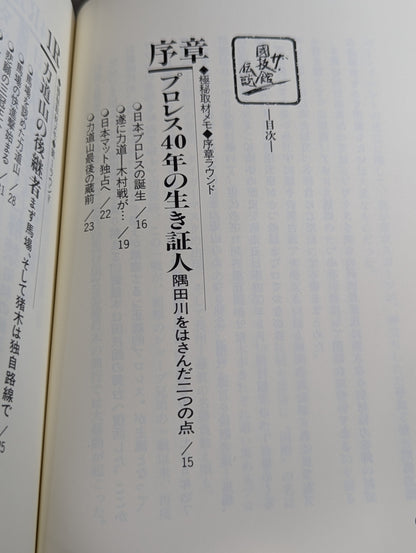 ザ・
國技館
伝説
―目次―
◆極秘取材メモ◆序章ラウンド
序章 プロレス40年の生き証人 隅田川をはさんだ二つの点／15
○日本プロレスの誕生／16
○遂に力道―木村戦が…／19
○日本マット独占へ／22
○力道山最後の蔵前／23
1R 力道山の後継者 まず馬場、そして猪木は独自路線で
力道山／28